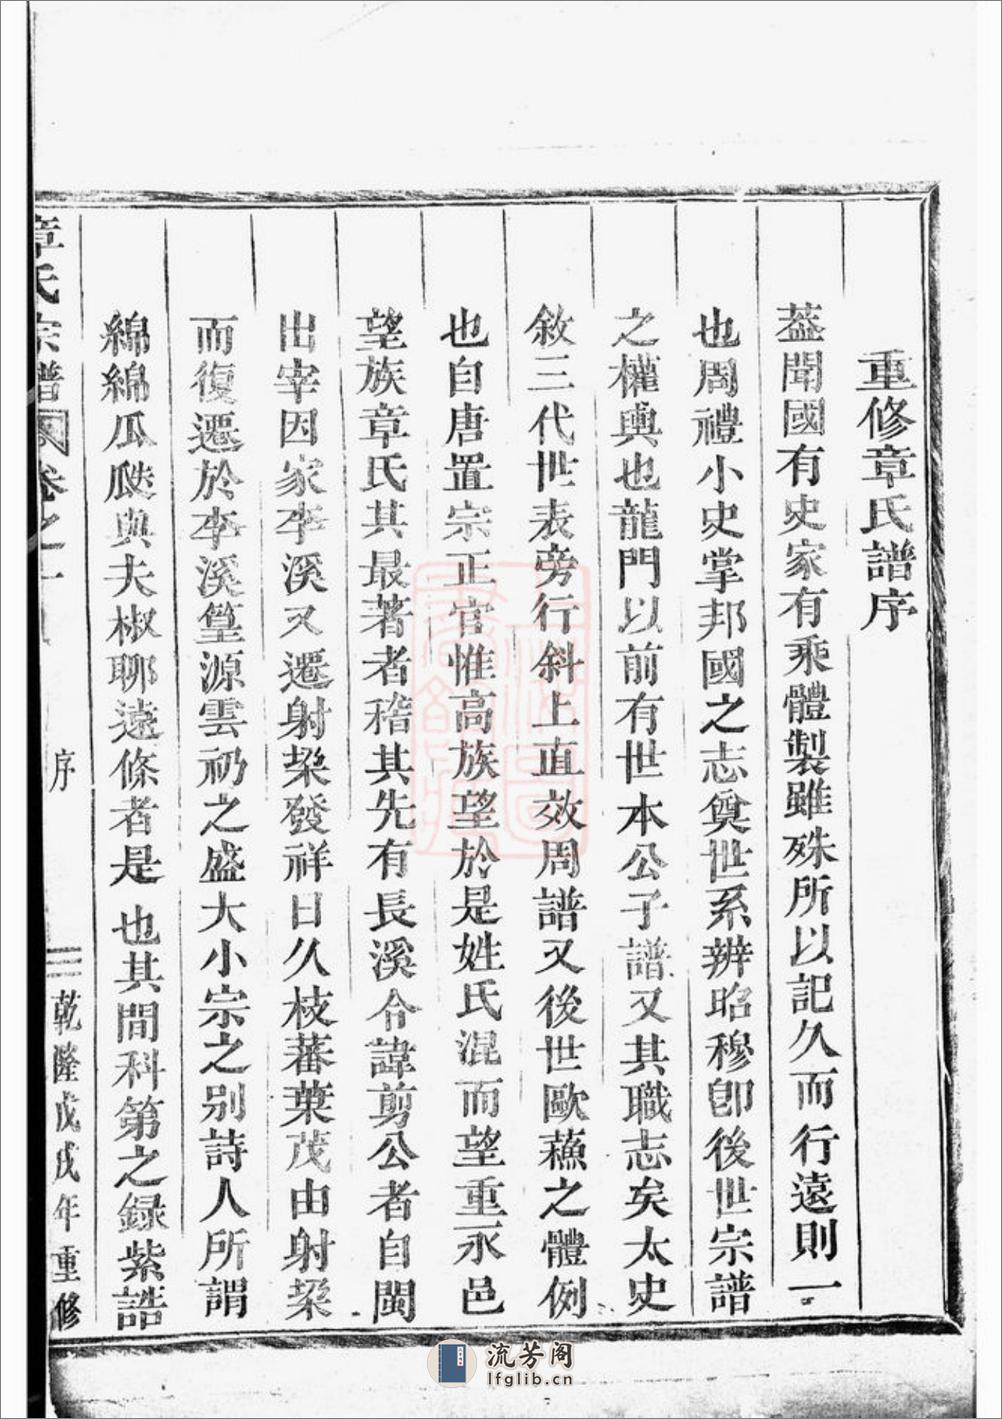 重修章氏譜序
葢聞國有史家有乘體製雖殊所以記久而行遠則一
也周禮小史掌邦國之志奠世系辨昭穆卽後世宗譜
之權輿也龍門以前有世本公子譜又其職志矣太史
敘三代世表旁行斜上直效周譜又後世歐蘓之體例
也自唐置宗正官惟高族望於是姓氏混而望重永邑
望族章氏其最著者稽其先有長溪令諱剪公者自閩
出宰因家李溪又遷射梁發祥日久枝蕃葉茂由射梁
而復遷於李溪篁源雲礽之盛大小宗之别詩人所謂
綿綿瓜瓞與夫椒聊遠條者是也其間科第之録紫誥
章氏宗譜 卷之一 序 乾隆戊戌年重修
流芳阁
lfglib.cn